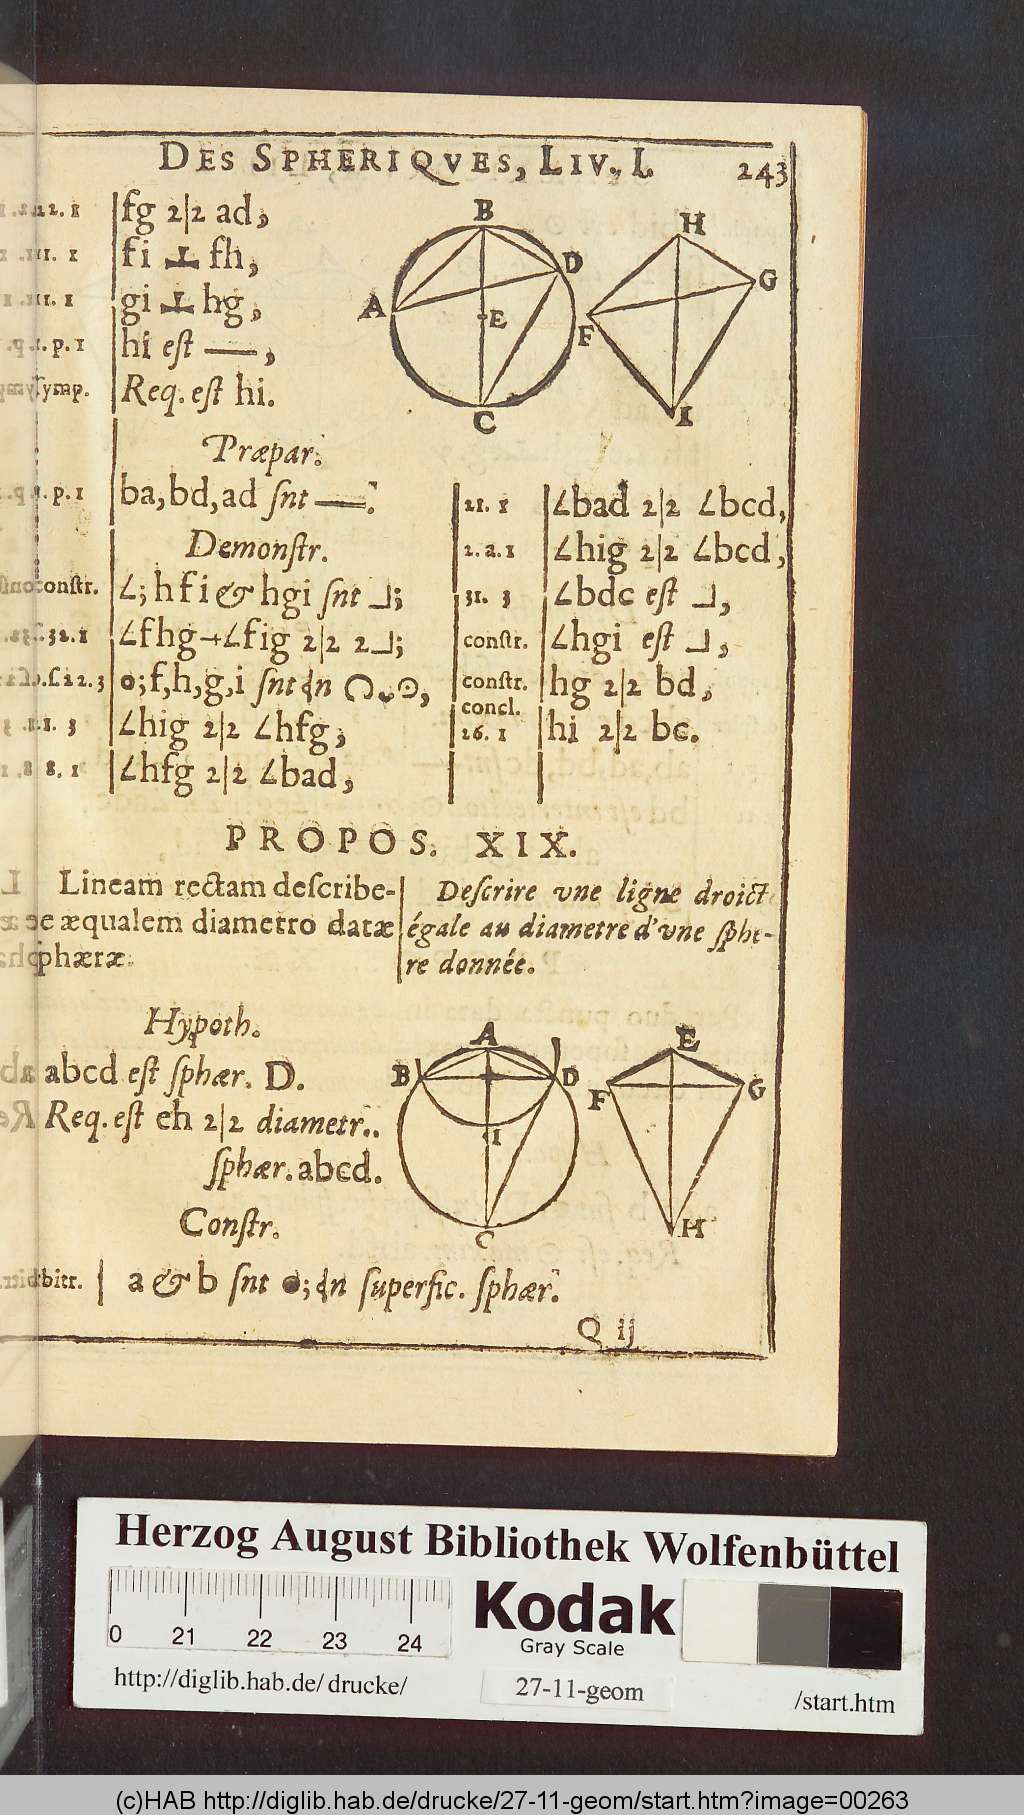 DES SPHERIQVES, LIV. I. 243
fg 2|2 ad,
fi ⊥ fh,
gi ⊥ hg,
p. 1 hi eſt —,
ſymp. Req. eſt hi.
B
D
A
E
C
H
G
F
I
Præpar.
p. 1 ba, bd, ad ſnt —.
Demonſtr.
conſtr. ∠; hfi & hgi ſnt ⅃;
32. 1 ∠fhg + ∠fig 2|2 2⅃;
•; f, h, g, i ſnt
1. 3 ∠hig 2|2 ∠hfg;
8. 1 ∠hfg 2|2 ∠bad,
21. 1 ∠bad 2|2 ∠bcd,
2. a. 1 ∠hig 2|2 ∠bcd,
31. 3 ∠bdc eſt ⅃,
conſtr. ∠hgi eſt ⅃,
conſtr. hg 2|2 bd,
concl.
26. 1 hi 2|2 bc.
PROPOS. XIX.
Lineam rectam deſcribe-
re æqualem diametro datæ
ſphæræ.
Deſcrire vne ligne droict
égale au diametre d'vne ſphe-
re donnée.
Hypoth.
abcd eſt ſphær. D.
Req. eſt eh 2|2 diametr..
ſphær. abcd.
A
B
D
I
C
E
F
G
H
Conſtr.
a & b ſnt •; ſuperfic. ſphær.
Q ij
Herzog August Bibliothek Wolfenbüttel
0 21 22 23 24
Kodak
Gray Scale
http://diglib.hab.de/ drucke/
27-11-geom
/start.htm
(c)HAB http://diglib.hab.de/drucke/27-11-geom/start.htm?image=00263